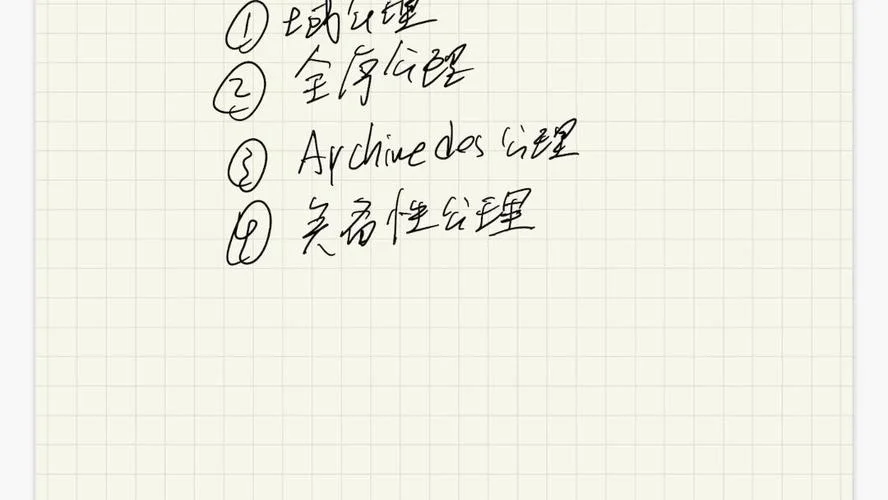 ① 域公理
② 全序公理
③ Archimedes 公理
④ 完备性公理